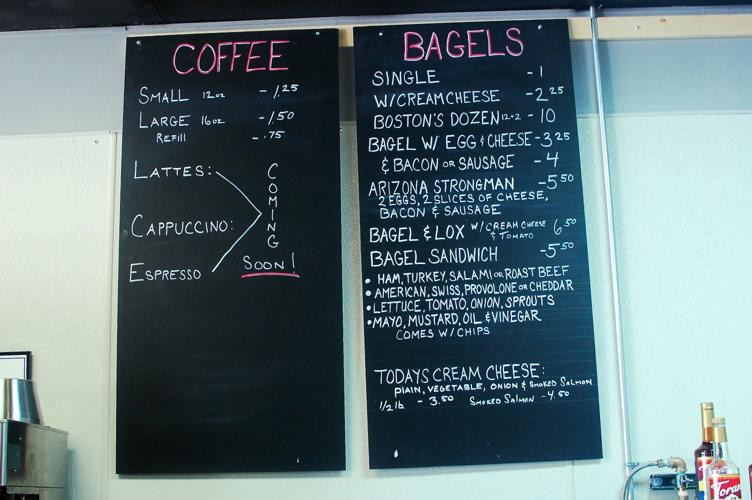 COFFEE
SMALL 12oz - 1.25
LARGE 16oz - 1.50
REfill - .75
LATTES:
CAPPUCCINO:
ESPRESSO
COMING
SOON!
BAGELS
SINGLE - 1
W/CREAM CHEESE - 2 25
BOSTON'S DOZEN 12+2 - 10
BAGEL W/ EGG & CHEESE - 3 25
& BACON OR SAUSAGE - 4
ARIZONA STRONGMAN - 5 50
2 EGGS, 2 SLICES OF CHEESE,
BACON & SAUSAGE
BAGEL & LOX W/CREAM CHEESE & TOMATO 6 50
BAGEL SANDWICH - 5 50
• HAM, TURKEY, SALAMI OR ROAST BEEF
• AMERICAN, SWISS, PROVOLONE OR CHEDDAR
• LETTUCE, TOMATO, ONION, SPROUTS
• MAYO, MUSTARD, OIL & VINEGAR
COMES W/ CHIPS
TODAYS CREAM CHEESE:
PlAIN, VEGETABLE, ONION & SMOKED SALMON
1/2 lb - 3.50 SMOKED SALMON - 4.50